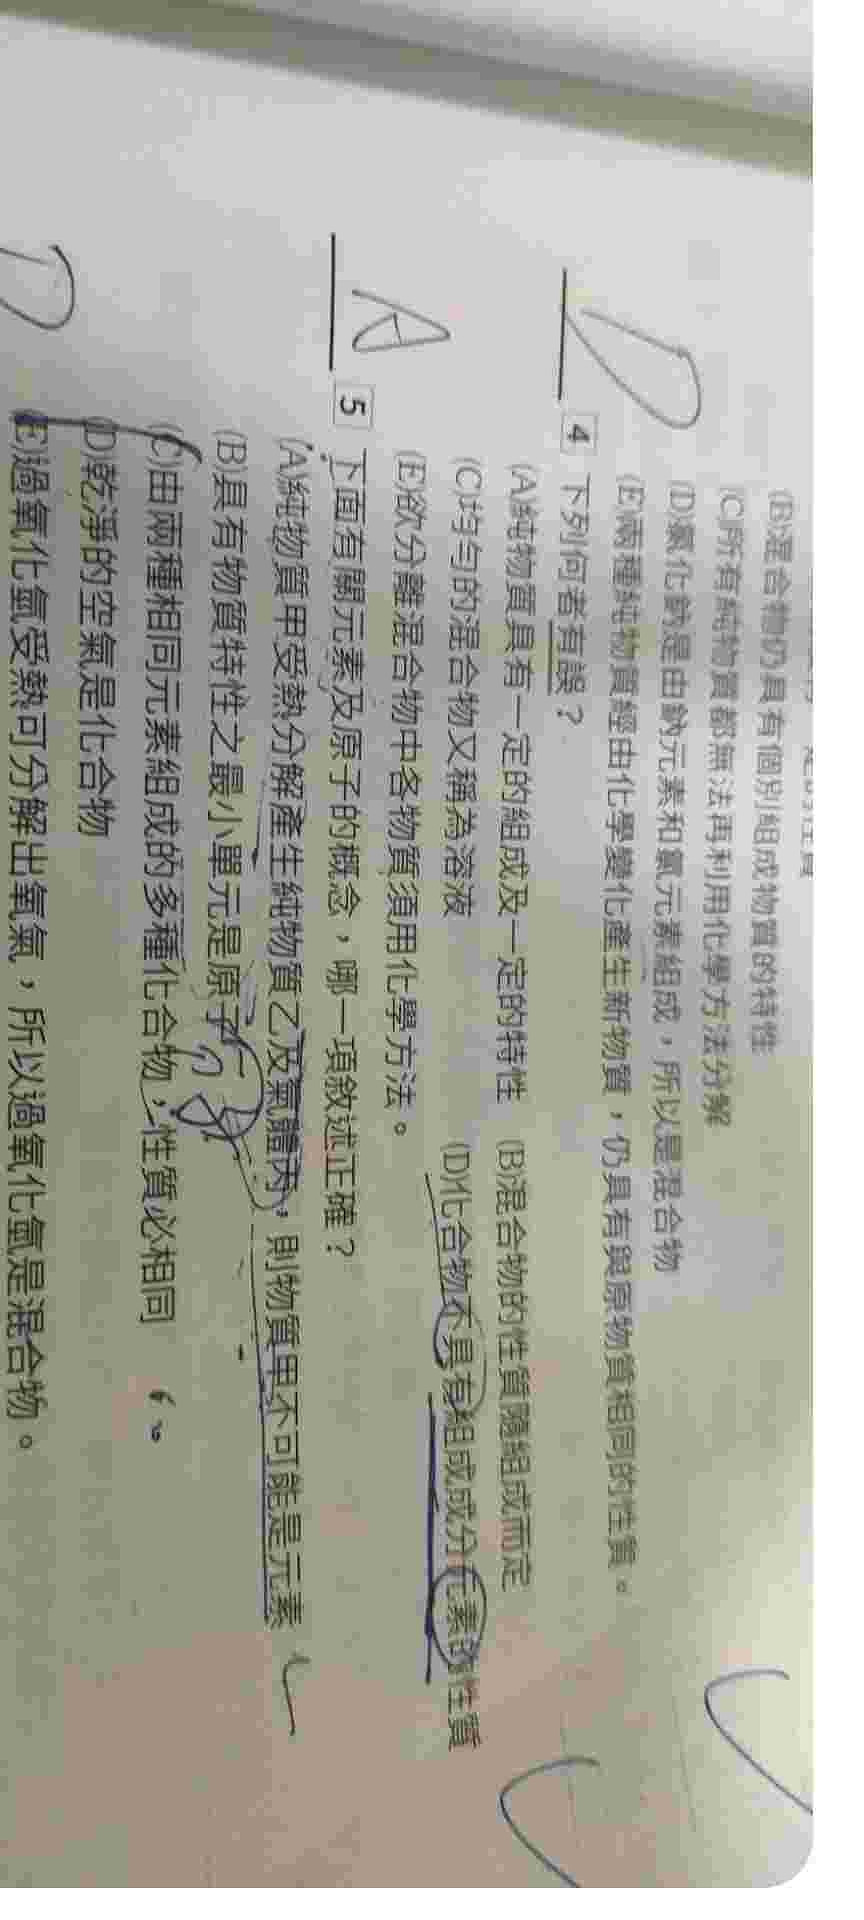 (B)混合物仍具有個別組成物質的特性
(C)所有純物質都無法再利用化學方法分解
(D)氯化鈉是由鈉元素和氯元素組成，所以是混合物
(E)兩種純物質經由化學變化產生新物質，仍具有與原物質相同的性質。
D 4 下列何者有誤？
(A)純物質具有一定的組成及一定的特性 (B)混合物的性質隨組成而定
(C)均勻的混合物又稱為溶液 (D)化合物不具有組成成分元素的性質
(E)欲分離混合物中各物質須用化學方法。
A 5 下面有關元素及原子的概念，哪一項敘述正確？
(A)純物質甲受熱分解產生純物質乙及氣體丙，則物質甲不可能是元素
(B)具有物質特性之最小單元是原子
(C)由兩種相同元素組成的多種化合物，性質必相同
(D)乾淨的空氣是化合物
D (E)過氧化氫受熱可分解出氧氣，所以過氧化氫是混合物。